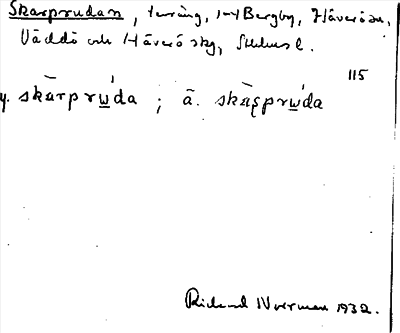 Skarprudan, terräng, int Bergby, Häverö sn,
Väddö och Häverö skg, Sthlms l.
115
y. skàrprw̲´da ; ä. skàrprw̲´da
Rickard Norrman 1932.